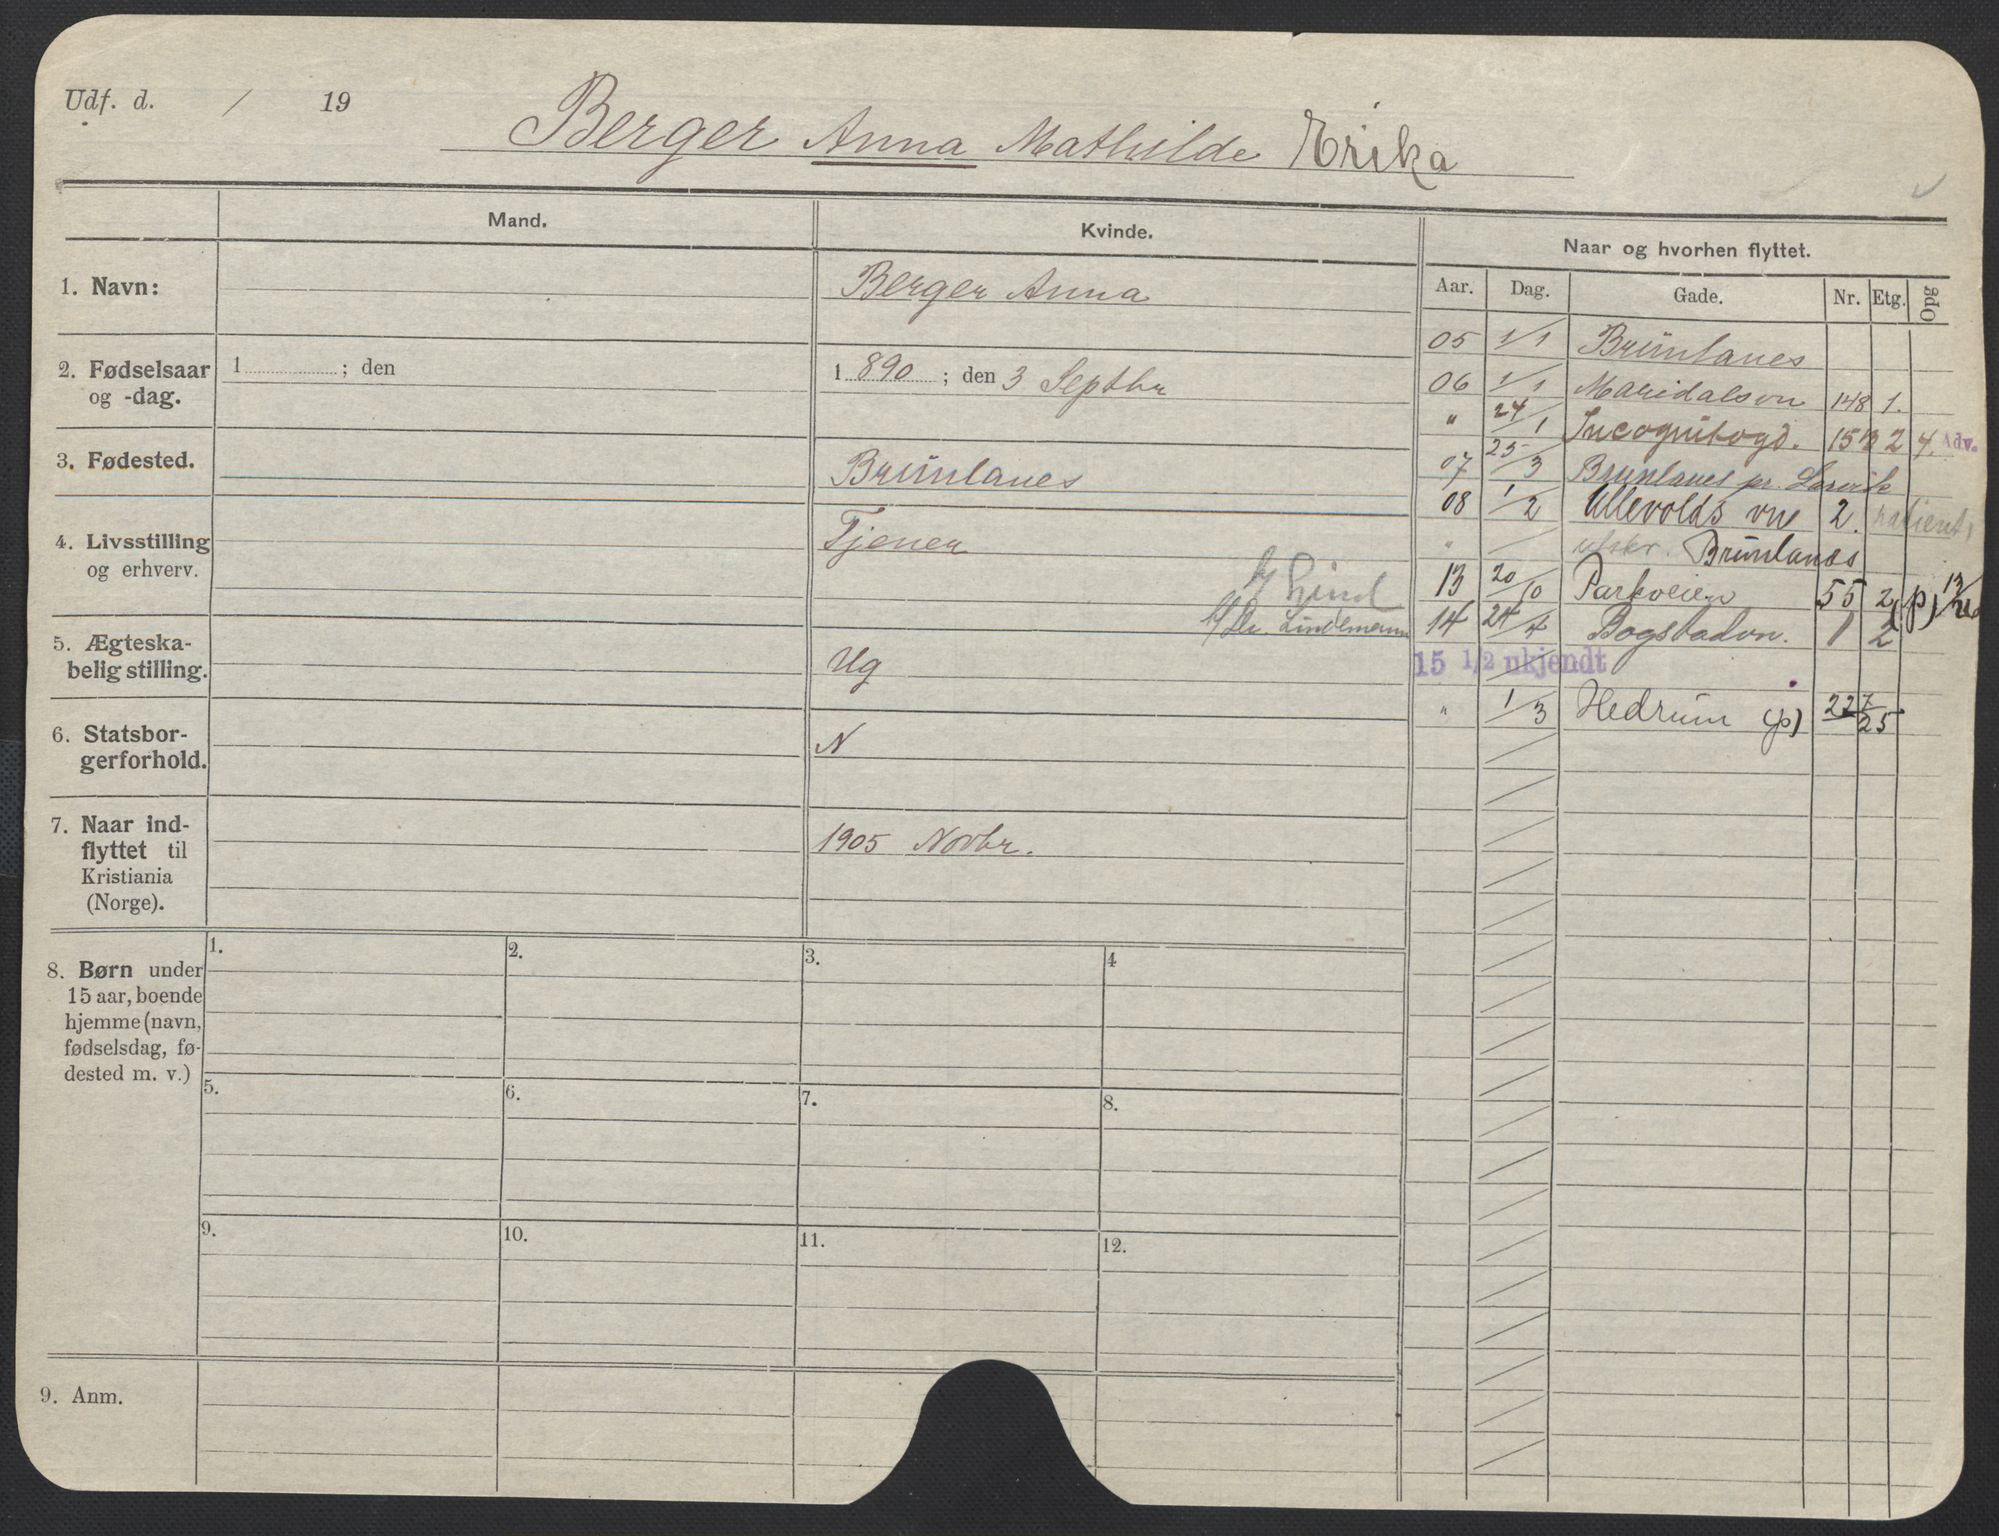 Udf. d. / 19
Berger Anna Mathilde Erika
Mand.
Kvinde.
Naar og hvorhen flyttet.
Aar. Dag. Gade. Nr. Etg. Opg
1. Navn:
Berger Anna
2. Fødselsaar
og -dag.
1 ; den
1 890 ; den 3 Septbr
3. Fødested.
Brunlanes
4. Livsstilling
og erhverv.
Tjener
b/ Lind
b/ Dr. Lindemann
5. Ægteska-
belig stilling.
Ug
6. Statsbor-
gerforhold.
N
7. Naar ind-
flyttet til
Kristiania
(Norge).
1905 Novbr.
05 1/1 Brunlanes
06 1/1 Maridalsvn 148 1.
" 24/1 Incognitogd. 15 2 4. Adv.
07 25/3 Brunlanes pr. Larvik
08 1/2 Ullevolds vne 2. patient
" / utskr. Brunlanes
13 20/10 Parkveien 55 2 (p)
14 24/4 Bogstadvn. 1 2
15 1/2 ukjendt
" 1/3 Hedrum (p) 227/25
8. Børn under
15 aar, boende
hjemme (navn,
fødselsdag, fø-
dested m. v.)
1. 2. 3. 4
5. 6. 7. 8.
9. 10. 11. 12.
9. Anm.